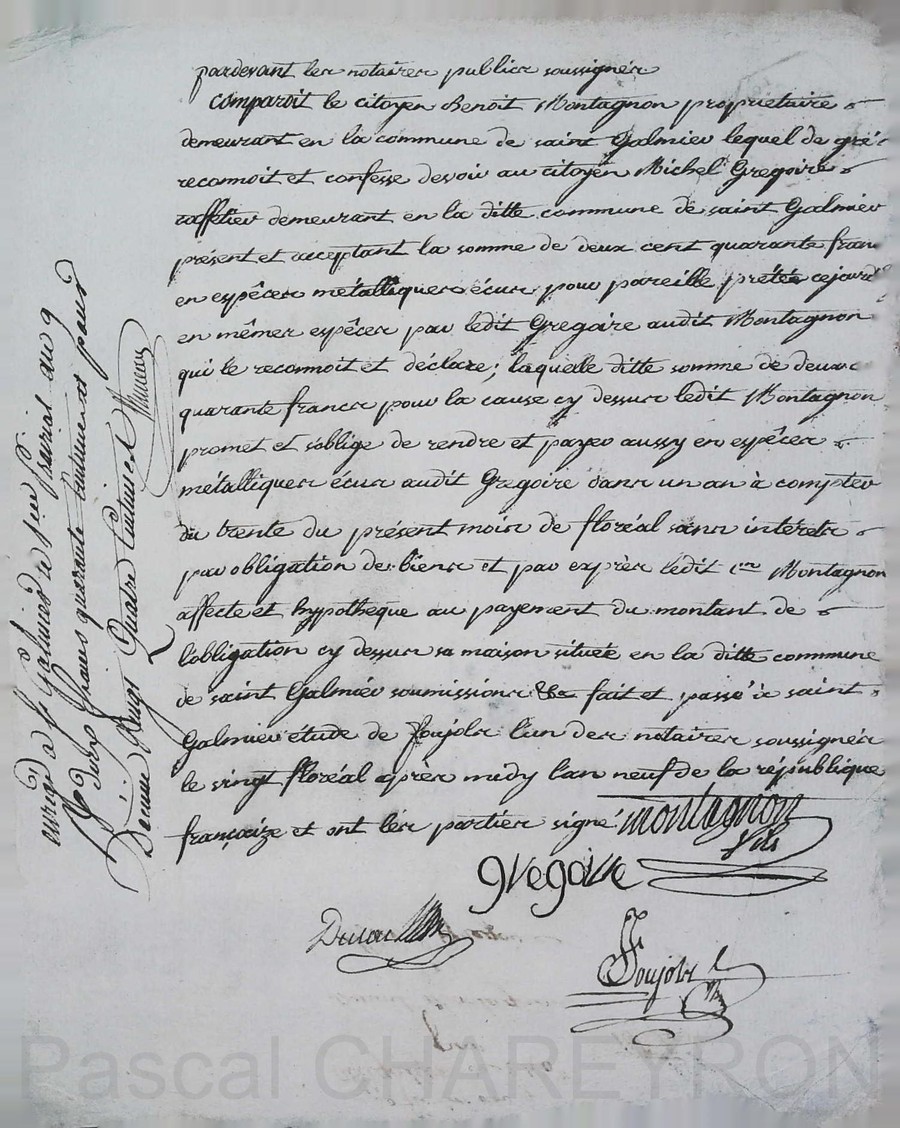 pardevant les notaires publics soussignés
comparoit le citoyen Benoit Montagnon propriétaire
demeurant en la commune de saint Galmier lequel de gré
reconnoit et confesse devoir au citoyen Michel Gregoire
caffetier demeurant en la ditte commune de saint Galmier
présent et acceptant la somme de deux cent quarante fran
en espêces métalliques écus pour pareille prétée cejourd
en mêmes espêces par ledit Gregoire audit Montagnon
qui le reconnoit et déclare; laquelle ditte somme de deux c
quarante francs pour la cause cy dessus ledit Montagnon
promet et s'oblige de rendre et payer aussy en espêces
métalliques écus audit Gregoire dans un an à compter
du trente du présent mois de floréal sans interets
par obligation de biens et par exprès ledit cen Montagnon
affecte et hypotheque au payement du montant de
l'obligation cy dessus sa maison située en la ditte commune
de saint Galmiér soumissions &a fait et passé à saint
Galmier étude de Poujols l'un des notaires soussignés
le vingt floréal après midy l'an neuf de la république
françaize et ont les parties signé montagnon
fils
gregoire
Poujols
enrgé à st Galmier le
an 9
francs quarante centimes
Quatre Centimes
Pascal CHAREYRON